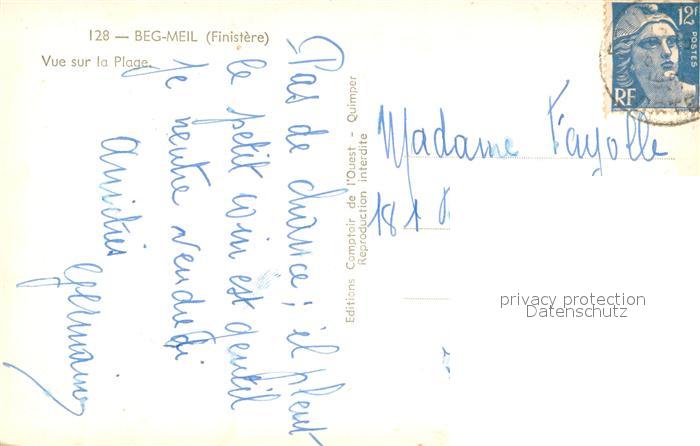 128 — BEG-MEIL (Finistère)
Vue sur la Plage.
Pas de chance ; il pleut
le petit coin est gentil
je rentre vendredi
amitiés
Germaine
Editions Comptoir de l'Ouest - Quimper
Reproduction interdite
12F
POSTES
RF
Madame Fayolle
181
privacy protection
Datenschutz